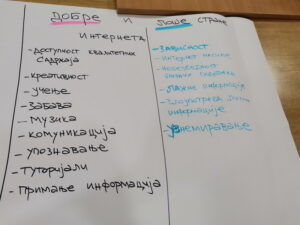 ДОБРЕ И ЛОШЕ СТРАНЕ
ИНТЕРНЕТА
- ДОСТУПНОСТ КВАЛИТЕТНИХ
САДРЖАЈА
- КРЕАТИВНОСТ
- УЧЕЊЕ
- ЗАБАВА
- МУЗИКА
- КОМУНИКАЦИЈА
- УПОЗНАВАЊЕ
- ТУТОРИЈАЛИ
- ПРИМАЊЕ ИНФОРМАЦИЈА
- ЗАВИСНОСТ
- ИНТЕРНЕТ НАСИЉЕ
- ЛАЖНЕ ИНФОРМАЦИЈЕ
- ЗЛОУПОТРЕБА
ИНФОРМАЦИЈЕ
- УЗНЕМИРАВАЊЕ